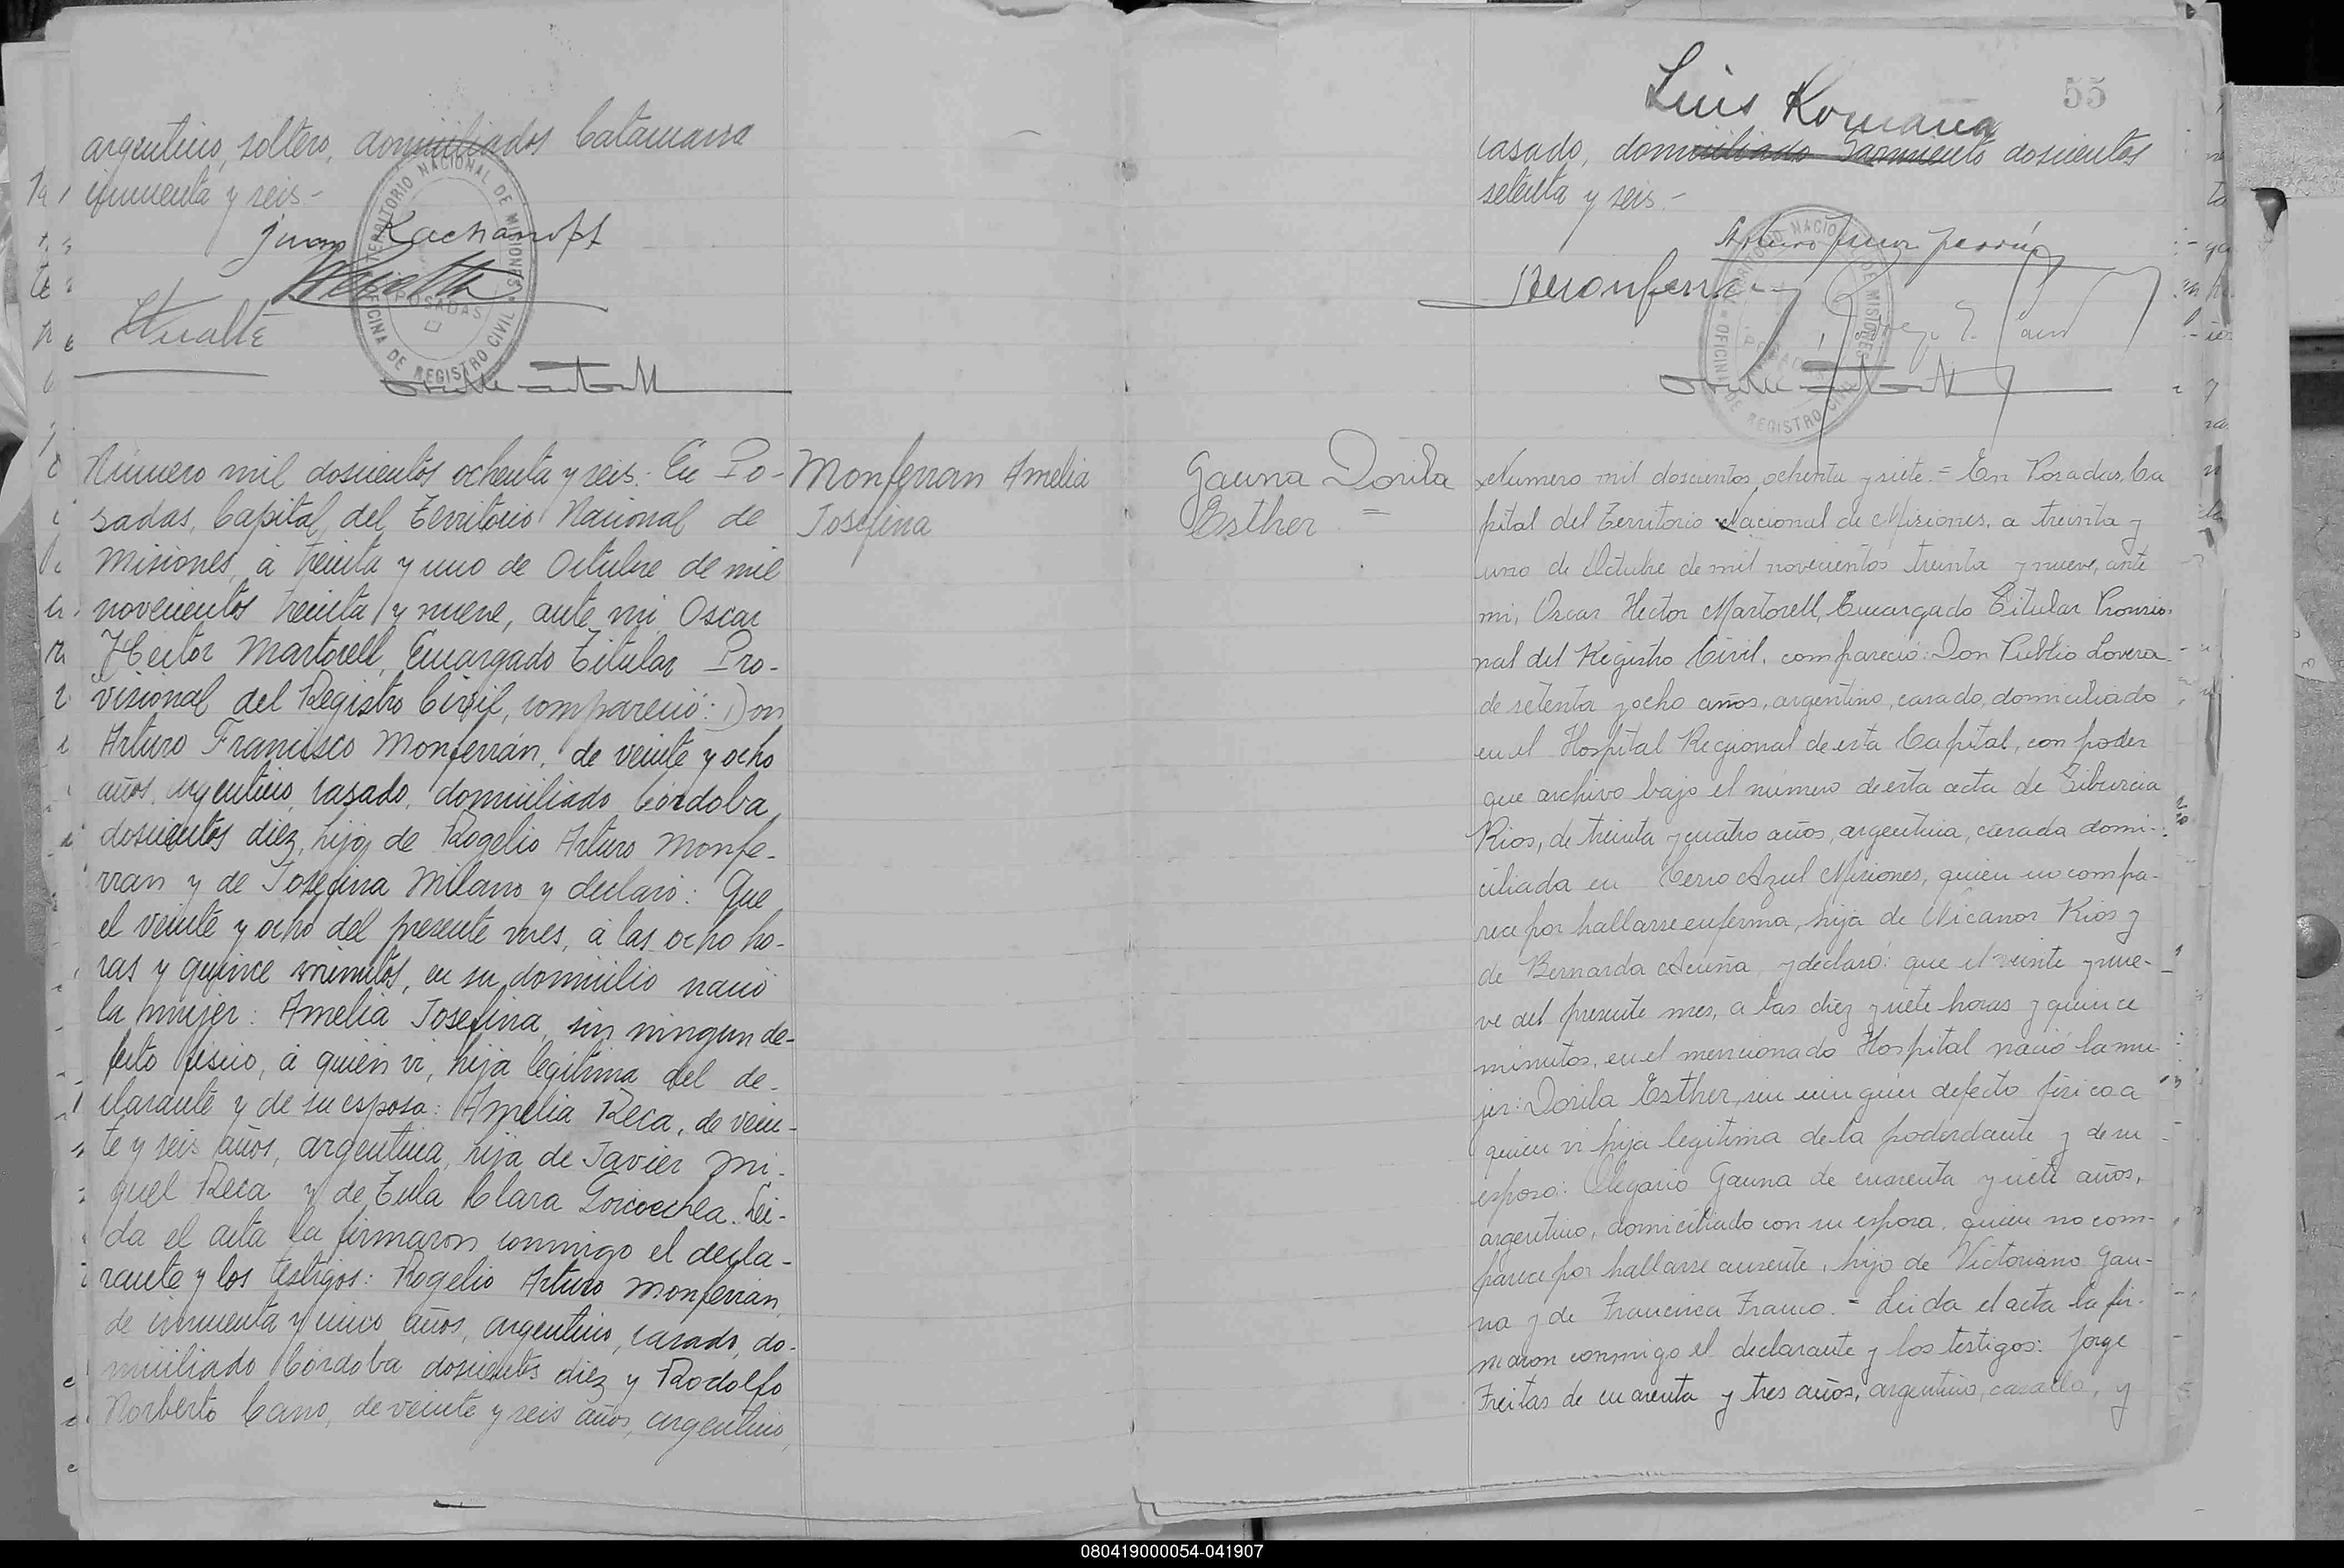 argentino, soltero, domiciliados Catamarca
cincuenta y seis.-
Juan Kachanoff
TERRITORIO NACIONAL DE MISIONES
OFICINA DE REGISTRO CIVIL
POSADAS
Número mil doscientos ochenta y seis. En Po-
sadas, Capital del Territorio Nacional de
Misiones, á treinta y uno de Octubre de mil
novecientos treinta y nueve, ante mi Oscar
Hector Martorell, Encargado Titular Pro-
visional del Registro Civil, compareció: Don
Arturo Francisco Monferrán, de veinte y ocho
años, argentino, casado, domiciliado Córdoba
doscientos diez, hijo de Rogelio Arturo Monfe-
rran y de Josefina Milano y declaró: Que
el veinte y ocho del presente mes, á las ocho ho-
ras y quince minutos, en su domicilio nació
la mujer: Amelia Josefina, sin ningun de-
fecto físico, á quién vi, hija legítima del de-
clarante y de su esposa: Amelia Reca, de vein-
te y seis años, argentina, hija de Javier Mi-
guel Reca y de Tula Clara Goicoechea. Lei-
da el acta la firmaron conmigo el decla-
rante y los testigos: Rogelio Arturo Monferran,
de cincuenta y cinco años, argentino, casado, do-
miciliado Córdoba doscientos diez y Rodolfo
Norberto Cano, de veinte y seis años, argentino,
Monferran Amelia
Josefina
55
Luis Romana
casado, domiciliado Sarmiento doscientos
setenta y seis.-
TERRITORIO NACIONAL DE MISIONES
OFICINA DE REGISTRO CIVIL
POSADAS
Gauna Dorila
Esther =
Numero mil doscientos ochenta y siete.= En Posadas, Ca
pital del Territorio Nacional de Misiones, a treinta y
uno de Octubre de mil novecientos treinta y nueve, ante
mi, Oscar Hector Martorell, Encargado Titular Provisio-
nal del Registro Civil, compareció: Don Publio Lovera
de setenta y ocho años, argentino, casado, domiciliado
en el Hospital Regional de esta Capital, con poder
que archivo bajo el número de esta acta de Tiburcia
Rios, de treinta y cuatro años, argentina, casada domi-
ciliada en Cerro Azul Misiones, quien no compa-
rece por hallarse enferma, hija de Nicanor Rios y
de Bernarda Acuña, y declaró: que el veinte y nue-
ve del presente mes, a las diez y siete horas y quince
minutos, en el mencionado Hospital nació la mu-
jer: Dorila Esther, sin ningún defecto físico a
quien vi hija legitima de la poderdante y de su
esposo: Olegario Gauna de cuarenta y siete años,
argentino, domiciliado con su esposa, quien no com-
parece por hallarse ausente, hijo de Victoriano Gau-
na y de Francisca Franco.= Leida el acta la fir-
maron conmigo el declarante y los testigos: Jorge
Freitas de cuarenta y tres años, argentino, casado, y
080419000054-041907